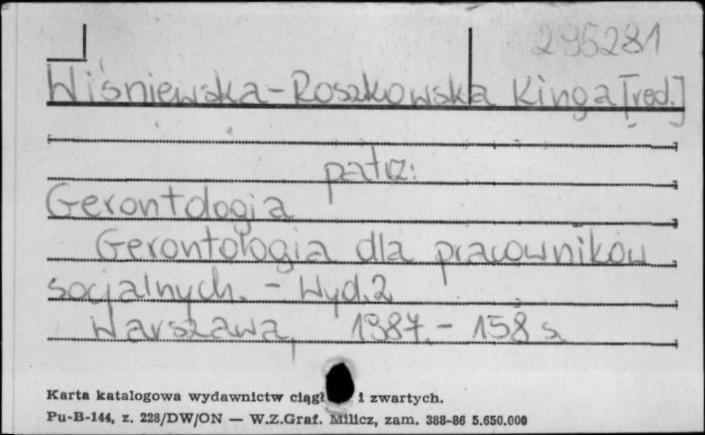 295281
Wiśniewska-Roszkowska Kinga [red.]
patrz:
Gerontologia
Gerontologia dla pracowników
socjalnych. - Wyd. 2
Warszawa, 1987. - 158 s
Karta katalogowa wydawnictw ciągł i zwartych.
Pu-B-144, z. 228/DW/ON — W.Z.Graf. Milicz, zam. 388-86 5.650.000